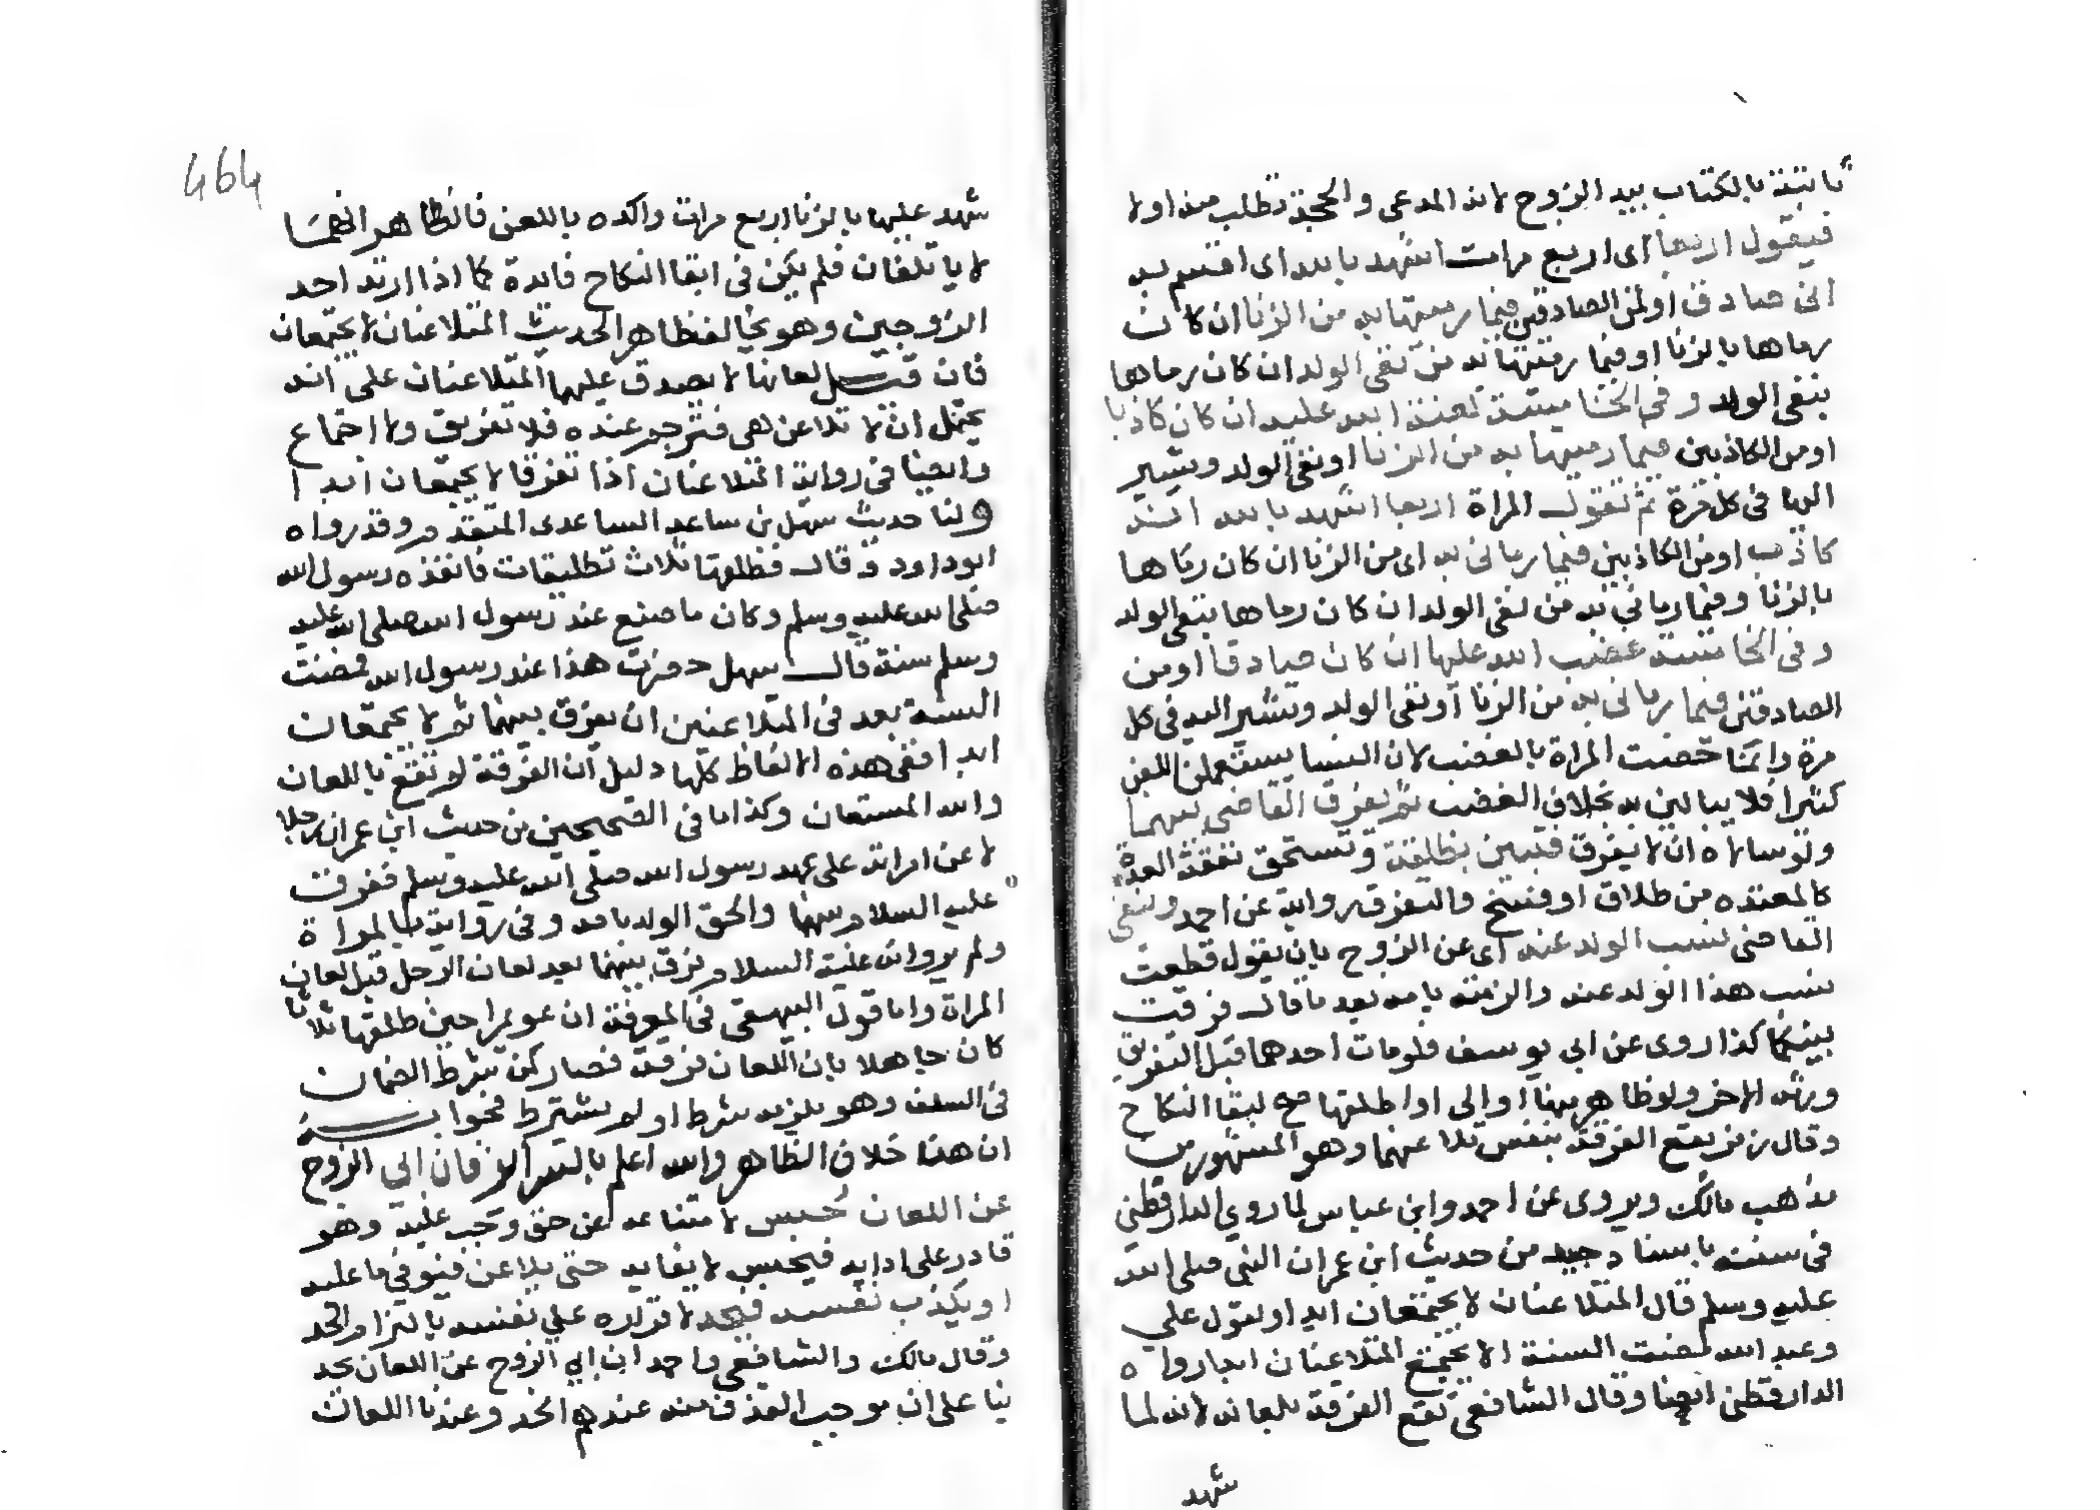 ثابتة بالكتاب بيد الزوج لانه المدعى والحجة تطلب منه اولا
فيقول اربعا اى اربع مرات اشهد بالله اى اقسم به
انى صادق اولمن الصادقين فيما رميتها به من الزنا ان كان
رماها بالزنا او فيما رميتها به من نفى الولد ان كان رماها
بنفى الولد وفى الخامسة لعنة الله عليه ان كان كاذبا
او من الكاذبين فيما رميتها به من الزنا او نفى الولد ويشير
اليها فى كل مرة ثم تقول المراة اربعا اشهد بالله انه
كاذب او من الكاذبين فيما رمانى به اى من الزنا ان كان رماها
بالزنا وفيما رمانى به من نفى الولد ان كان رماها بنفى الولد
وفى الخامسة غضب الله عليها ان كان صادقا او من
الصادقين فيما رمانى به من الزنا او نفى الولد وتشير اليه فى كل
مرة وانما خصت المراة بالغضب لان النسا يستعملن اللعن
كثيرا فلا يبالين به بخلاف الغضب ثم يفرق القاضى بينهما
ولو سالاه ان لا يفرق فتبين بطلقة وتستحق نفقة العدة
كالمعتده من طلاق او فسخ والتفرقه رواية عن احمد وينفى
القاضى نسب الولد عنه اى عن الزوج بان يقول قطعت
نسب هذا الولد عنه والزمته بامه بعد ما قال فرقت
بينكما كذا روى عن ابى يوسف فلو مات احدهما قبل التفريق
ورثه الاخر ولو ظاهر منها او الى او اطلقها صح لبقا النكاح
وقال زفر يقع الفرقة بنفس تلاعنهما وهو المشهور من
مذهب مالك ويروى عن احمد وابن عباس لما روي الدارقطنى
فى سننه باسناد جيد من حديث ابن عمر ان النبى صلى الله
عليه وسلم قال المتلاعنان لا يجتمعان ابدا ولقول علي
وعبد الله مضت السنة الا يجتمع المتلاعنان ابدا رواه
الدارقطنى ايضا وقال الشافعى تقع الفرقة بلعانه لانه لما
شهد
464
شهد عليها بالزنا اربع مرات واكده باللعن فالظاهر انهما
لا ياتلفان فلم يكن فى ابقا النكاح فايدة كما اذا ارتد احد
الزوجين وهو يخالف ظاهر الحديث المتلاعنان لا يجتمعان
فان قبل لعانها لا يصدق عليهما المتلاعنان على انه
يحتمل ان لا تلاعن هى فترجم عنده فلا تفريق ولا اجتماع
وايضا فى رواية المتلاعنان اذا تفرقا لا يجتمعان ابدا
ولنا حديث سهل بن ساعد الساعدى المتقدم وقد رواه
ابو داود وقال فطلقها ثلاث تطليقات فانفذه رسول الله
صلى الله عليه وسلم وكان ما صنع عند رسول الله صلى الله عليه
وسلم سنة قال سهل حضرت هذا عند رسول الله فمضت
السنة بعد فى المتلاعنين ان يفرق بينهما ثم لا يجتمعان
ابدا ففى هذه الالفاظ كلها دليل ان الفرقة لم تقع باللعان
والله المستعان وكذا ما فى الصحيحين من حديث ابن عمر ان رجلا
لاعن امراته على عهد رسول الله صلى الله عليه وسلم ففرق
عليه السلام بينهما والحق الولد بامه وفى رواية بالمراة
ولم يرو انه عليه السلام فرق بينهما بعد لعان الرجل قبل لعان
المراة واما قول البيهقى فى المعرفة ان عويمرا حين طلقها ثلاثا
كان جاهلا بان اللعان فرقة فصار كمن شرط الضمان
فى السلف وهو يلزمه شرط او لم يشترط فجوابه
ان هذا خلاف الظاهر والله اعلم بالسراير فان ابي الزوج
عن اللعان حُبس لامتناعه عن حق وجب عليه وهو
قادر على ادايه فيحبس لايفايه حتى يلاعن فيوفي ما عليه
او يكذب نفسه فيحد لاقراره علي نفسه بالتزام الحد
وقال مالك والشافعى واحمد ان ابي الزوج عن اللعان يحد
بنا على ان موجب القذف منه عندهم الحد وعندنا اللعان